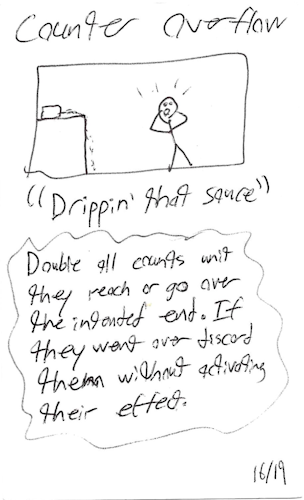 Counter Overflow
"Drippin' that sauce"
Double all counts unit
they reach or go over
the intended end. If
they went over discard
them without activating
their effect.
16/19